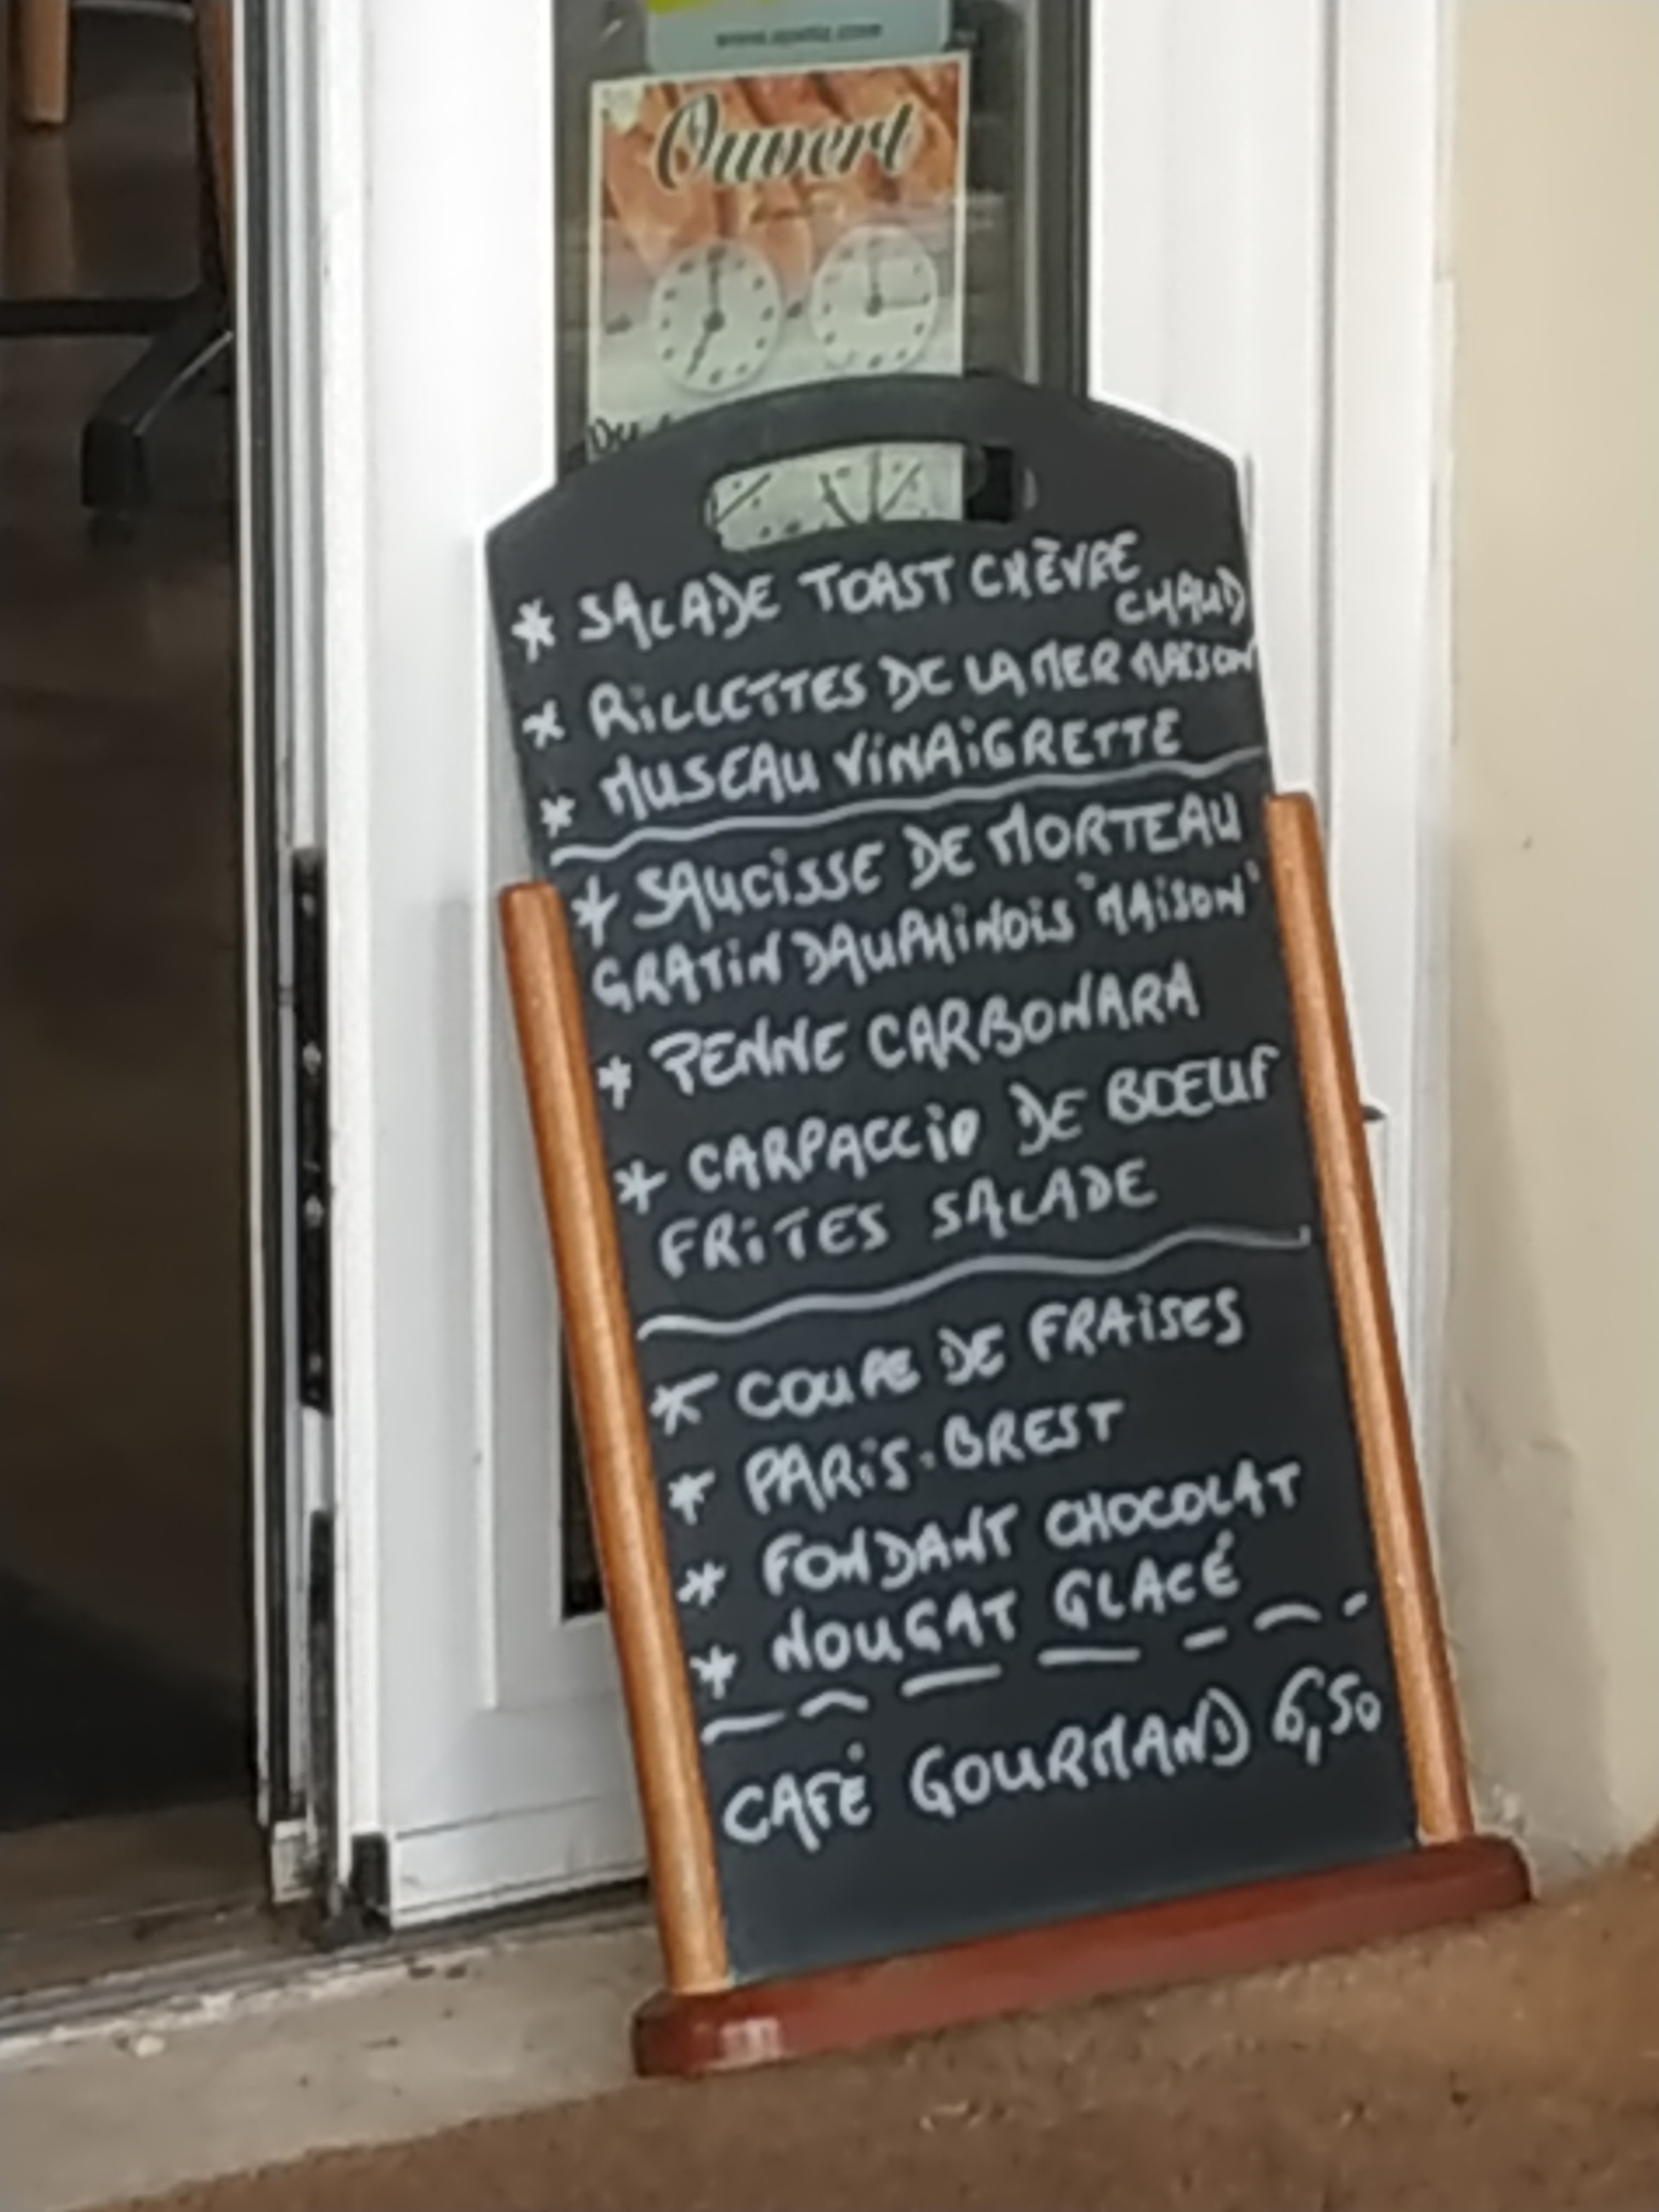 Ouvert
* SALADE TOAST CHÈVRE
CHAUD
* RILLETTES DE LA MER MAISON
* MUSEAU VINAIGRETTE
* SAUCISSE DE MORTEAU
GRATIN DAUPHINOIS "MAISON"
* PENNE CARBONARA
* CARPACCIO DE BOEUF
FRITES SALADE
* COUPE DE FRAISES
* PARIS-BREST
* FONDANT CHOCOLAT
* NOUGAT GLACÉ
CAFÉ GOURMAND 6,50